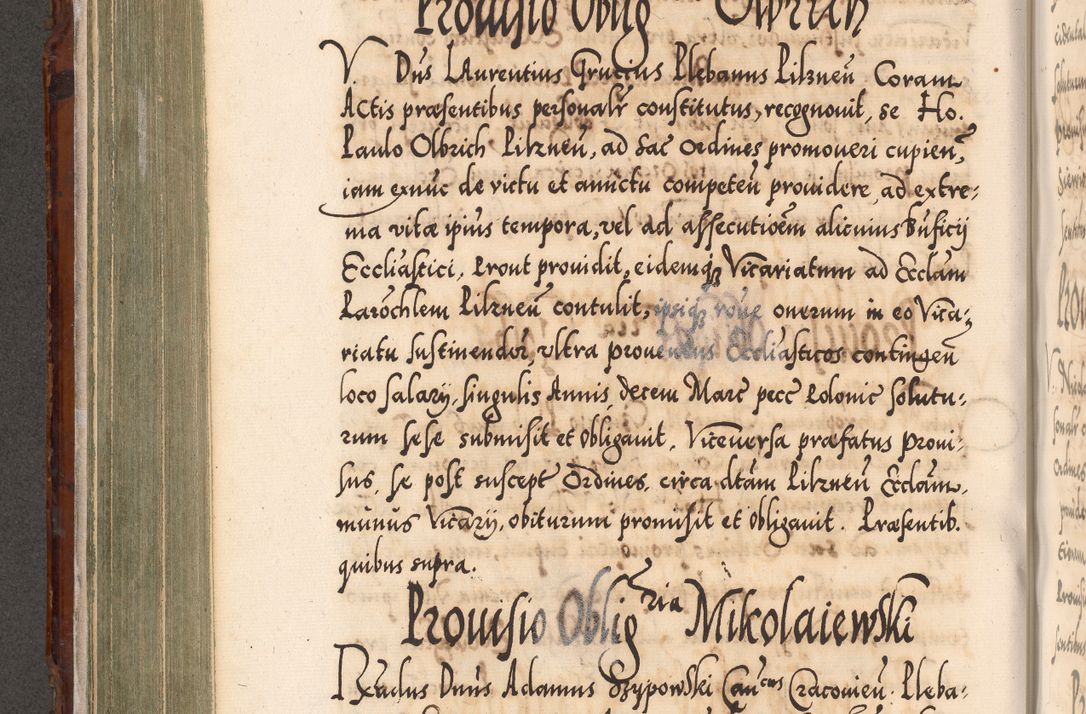 Prouisio Oblig Olbrich
V. Dns Laurentius Gruccus Plebanus Pilzneń Coram
Actis præsentibus personalr constitutus, recognouit, se Ho.
Paulo Olbrich Pilzneń, ad Sac ordines promoueri cupien,
iam exnuc de victu et amictu competeń prouidere, ad extre:
ma vitæ ipius tempora, vel ad assecutioem alicuius Bnficij
Eccliastici, Prout prouidit, eidemq3 Vicariatum ad Ecclam
Parochlem Pilzneń contulit, ipsiq3 onerum in eo Vica,
riatu sustinendor, vltra prouentus Eccliasticos contingeń
loco salarij, singulis Annis, decem Marc pecc Polonic solutu:
rum sese submisit et obligauit. Viceuersa præfatus Proui:
sus, se post suscept Ordines, circa dtam Pilzneń Ecclam,
munus Vicarij, obiturum promisit et obligauit. Præsentib.
quibus supra.
Prouisio Oblig ria Mikolaiewski
Rndus Dnus Adamus Szypowski Cancus Cracouień. Pleba: